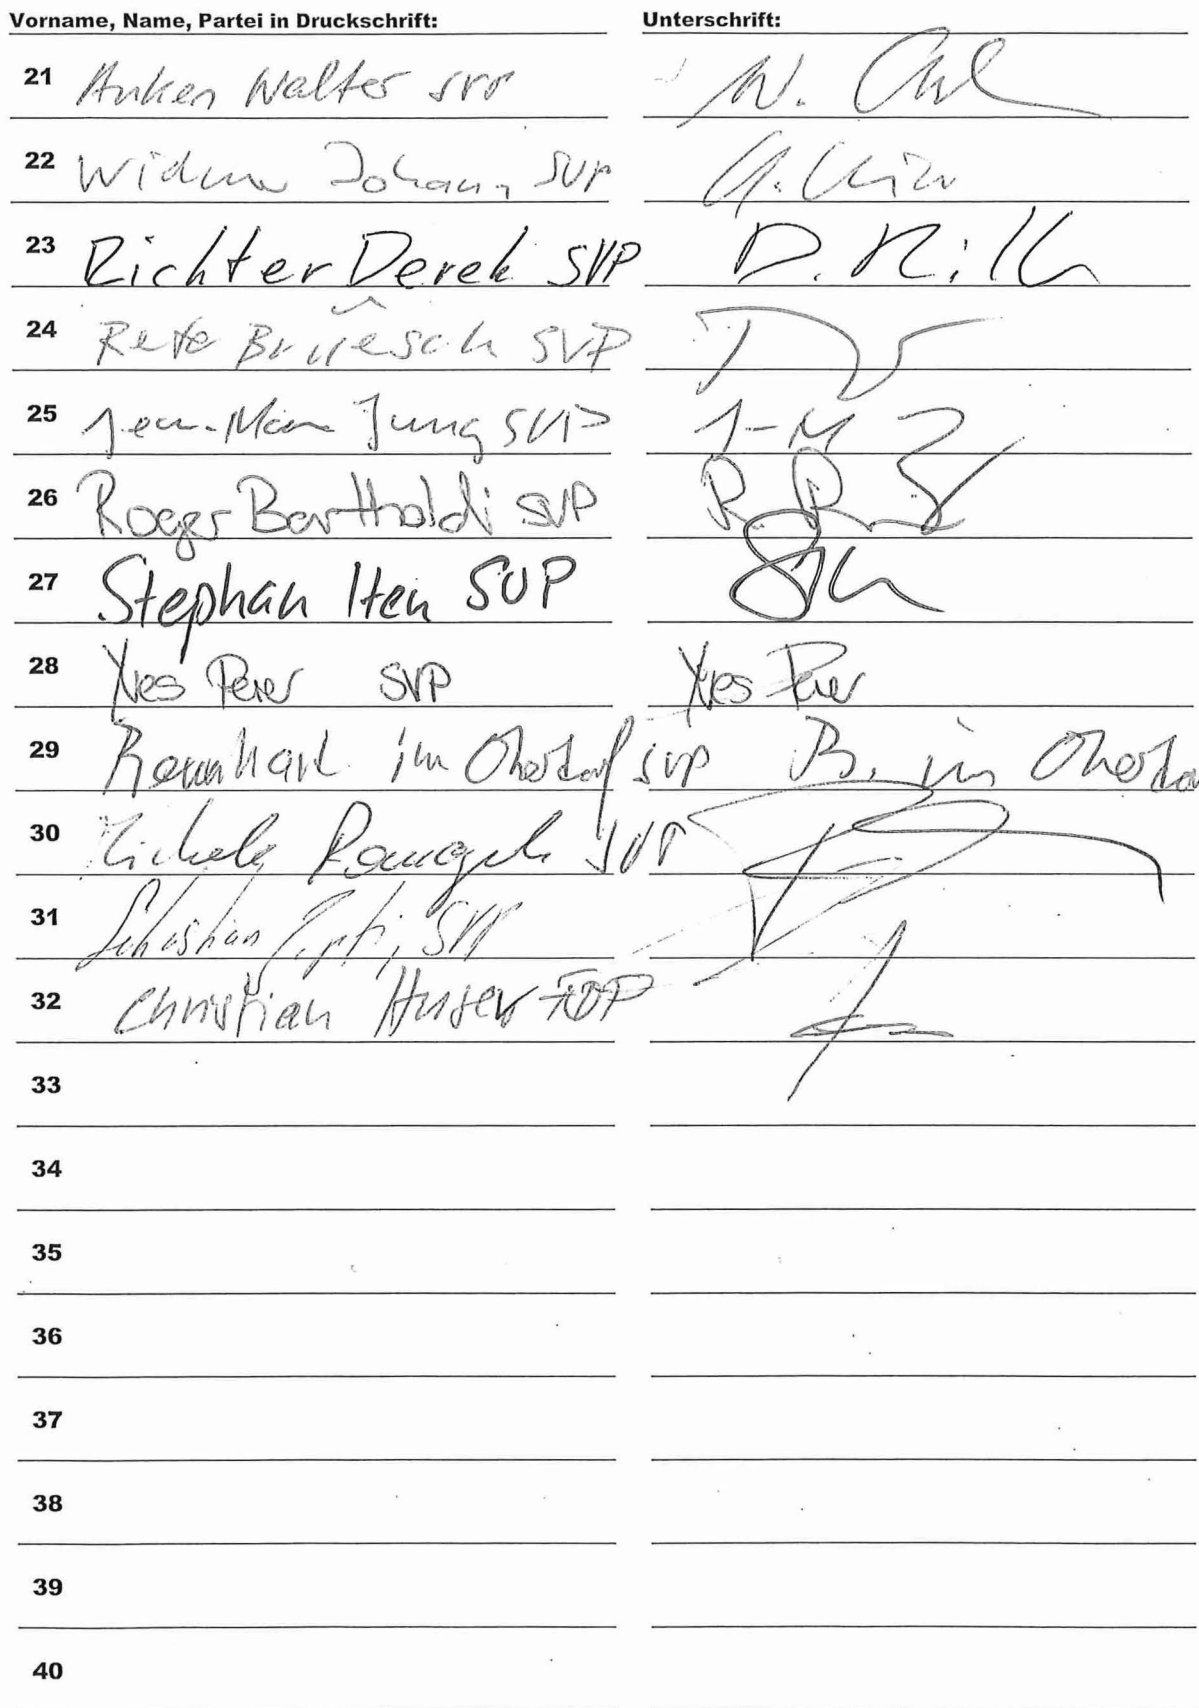 Vorname, Name, Partei in Druckschrift: Unterschrift:
21 Anken Walter SVP W.
22 Widmer Johann SVP
23 Richter Derek SVP D.
24 Reto Brüesch SVP
25 Jean-Marc Jung SVP J-M J
26 Roger Bartholdi SVP R.
27 Stephan Iten SVP
28 Yves Peier SVP Yves Peier
29 Bernhard im Oberdorf SVP B. im Oberdorf
30 Michele Romagnolo SVP
31 Sebastian SVP
32 Christian Huser FDP
33
34
35
36
37
38
39
40